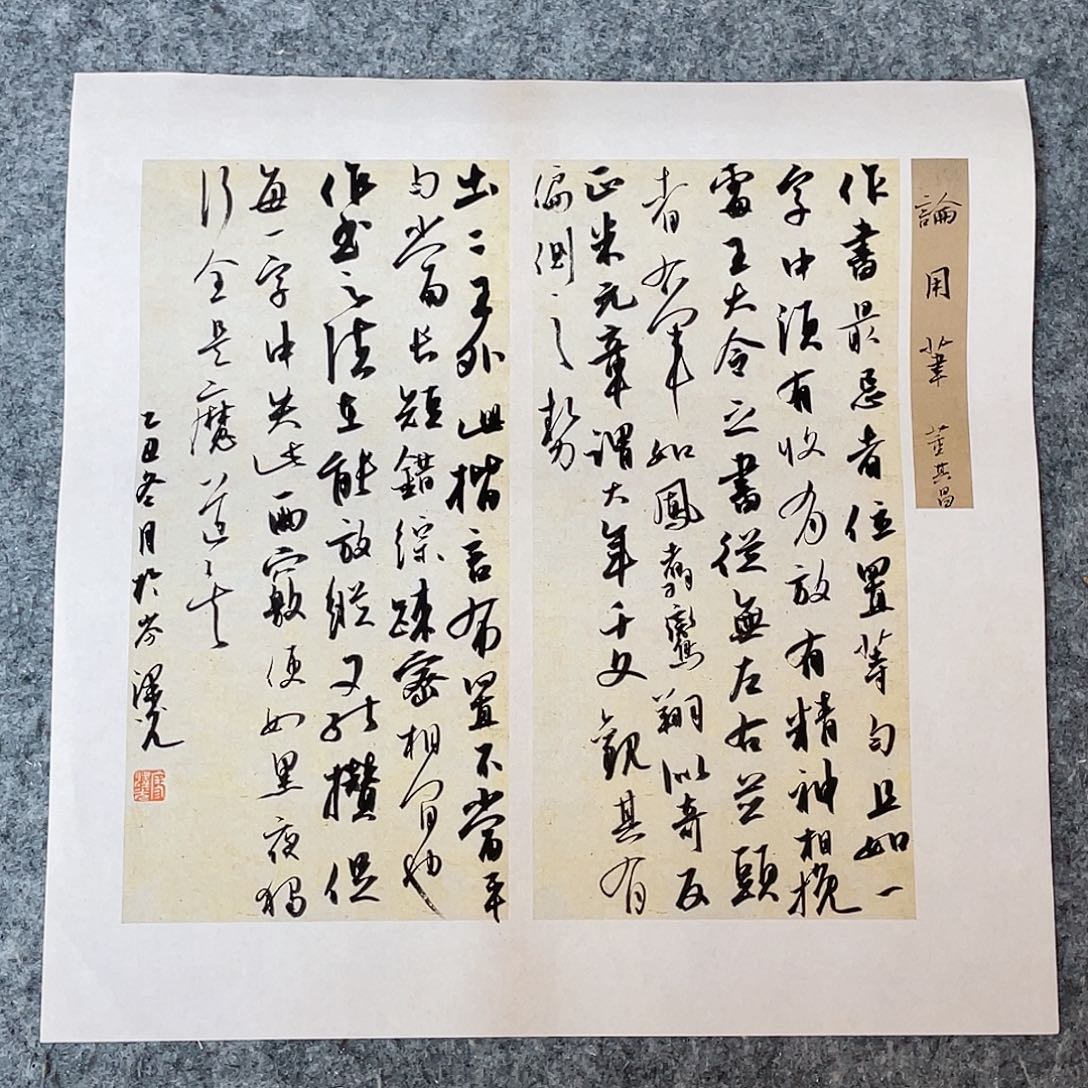 論用筆 董其昌
作書最忌者位置等勻且如一
字中須有收有放有精神相挽
處王大令之書從無左右並頭
者右軍如鳳翥鸞翔似奇反
正米元章謂大年千文觀其有
偏側之勢
出二王外此楷言布置不當平
勻當長短錯綜疎密相間也
作書之法在能放縱又能攢促
每一字中失此兩竅便如黑夜獨
行全是魔道矣
乙丑冬月於